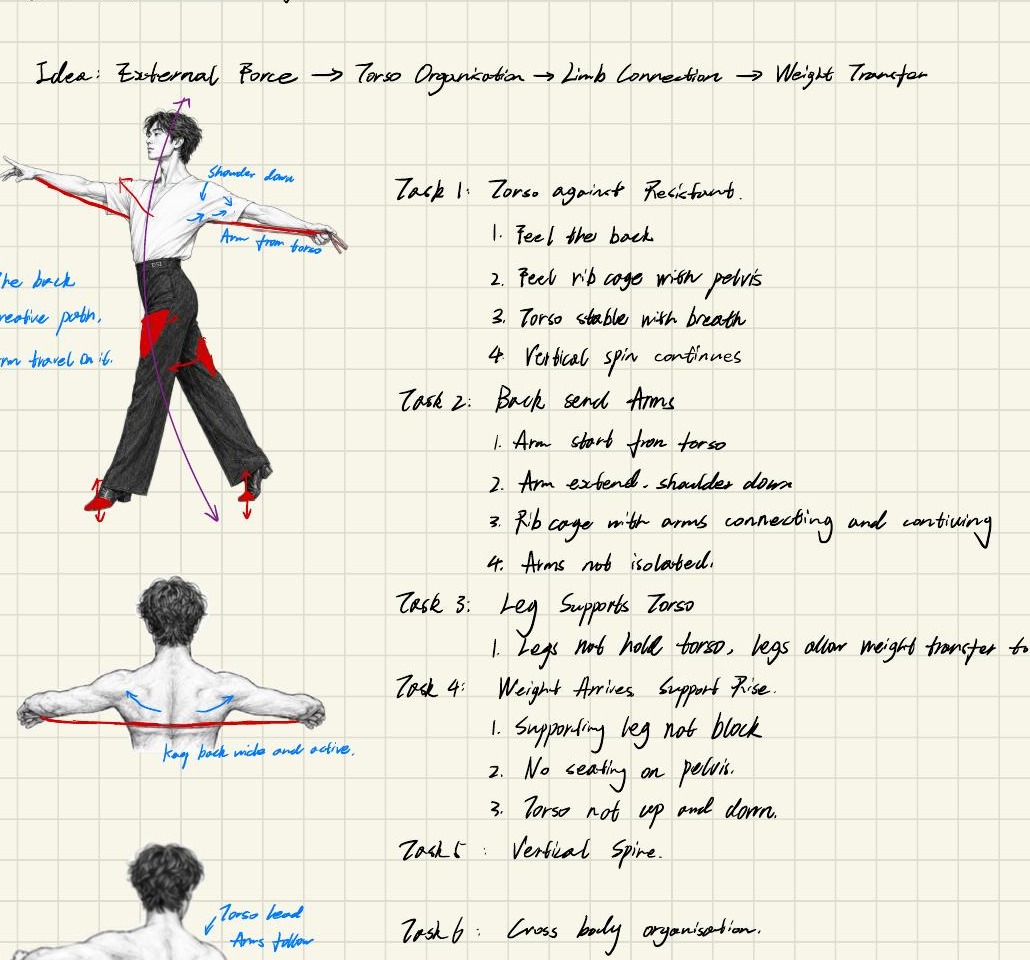 Idea: External Force → Torso Organisation → Limb Connection → Weight Transfer
Shoulder down
Arm from torso
the back
creative path,
arm travel on it.
Task 1: Torso against Resistant.
1. Feel the back
2. Feel rib cage with pelvis
3. Torso stable with breath
4. Vertical spin continues
Task 2: Back send Arms
1. Arm start from torso
2. Arm extend. shoulder down
3. Rib cage with arms connecting and contiuing
4. Arms not isolated.
Task 3: Leg Supports Torso
1. Legs not hold torso, legs allow weight transfer to
Task 4: Weight Arrives, Support Rise.
1. Supporting leg not block
2. No seating on pelvis.
3. Torso not up and down.
back wide and active.
Task 5: Vertical Spine.
Torso lead
Arms follow
Task 6: Cross body organisation.